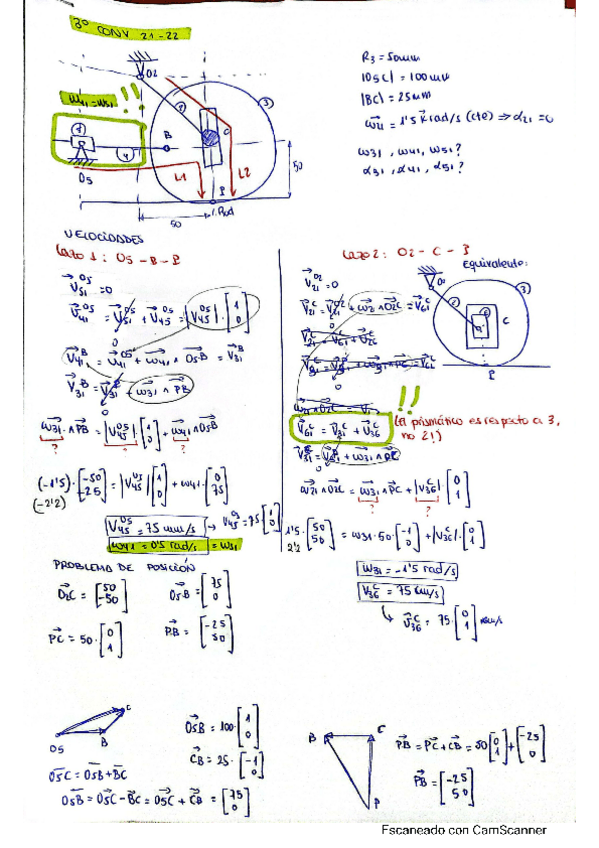 3º CONV 21-22
R3 = 50mm
|O5C| = 100mm
|BC| = 25mm
ω21 = 1'5 k rad/s (cte) ⇒ α21 = 0
ω31, ω41, ω51?
α31, α41, α51?
ω41 = ω51 !!
O2
2
3
5
4
B
C
O5
L1
L2
P
I. Rod
50
50
VELOCIDADES
Lazo 1: O5 - B - P
V51^O5 = 0
V41^O5 = V51^O5 + V45^O5 = |V45^O5| · [1 0]
V41^B = V41^O5 + ω41 ∧ O5B = V31^B
V31^B = V31^P + ω31 ∧ PB
ω31 ∧ PB = |V45^O5| [1 0] + ω41 ∧ O5B
? ? ?
(-1'5) · [-50 -25] = |V45^O5| [1 0] + ω41 · [0 75]
(-2'2)
V45^O5 = 75 mm/s → V45^O5 = 75 · [1 0]
ω41 = 0'5 rad/s = ω51
Lazo 2: O2 - C - P
Equivalente:
V21^O2 = 0
V21^C = V21^O2 + ω21 ∧ O2C = V61^C
!!
V61^C = V31^C + V36^C (El prismático es respecto a 3, no 2!)
V31^C = V31^P + ω31 ∧ PC
ω21 ∧ O2C = ω31 ∧ PC + |V36^C| · [0 1]
? ?
1'5 · [50 50] = ω31 · 50 · [-1 0] + |V36^C| · [0 1]
2'2
ω31 = -1'5 rad/s
V36^C = 75 mm/s
V36^C = 75 · [0 1] mm/s
PROBLEMA DE POSICIÓN
O2C = [50 -50] O5B = [75 0]
PC = 50 · [0 1] PB = [-25 50]
O5 B C
O5C = O5B + BC
O5B = O5C - BC = O5C + CB = [75 0]
O5B = 100 · [1 0]
CB = 25 · [-1 0]
B C P
PB = PC + CB = 50 [0 1] + [-25 0]
PB = [-25 50]
Escaneado con CamScanner